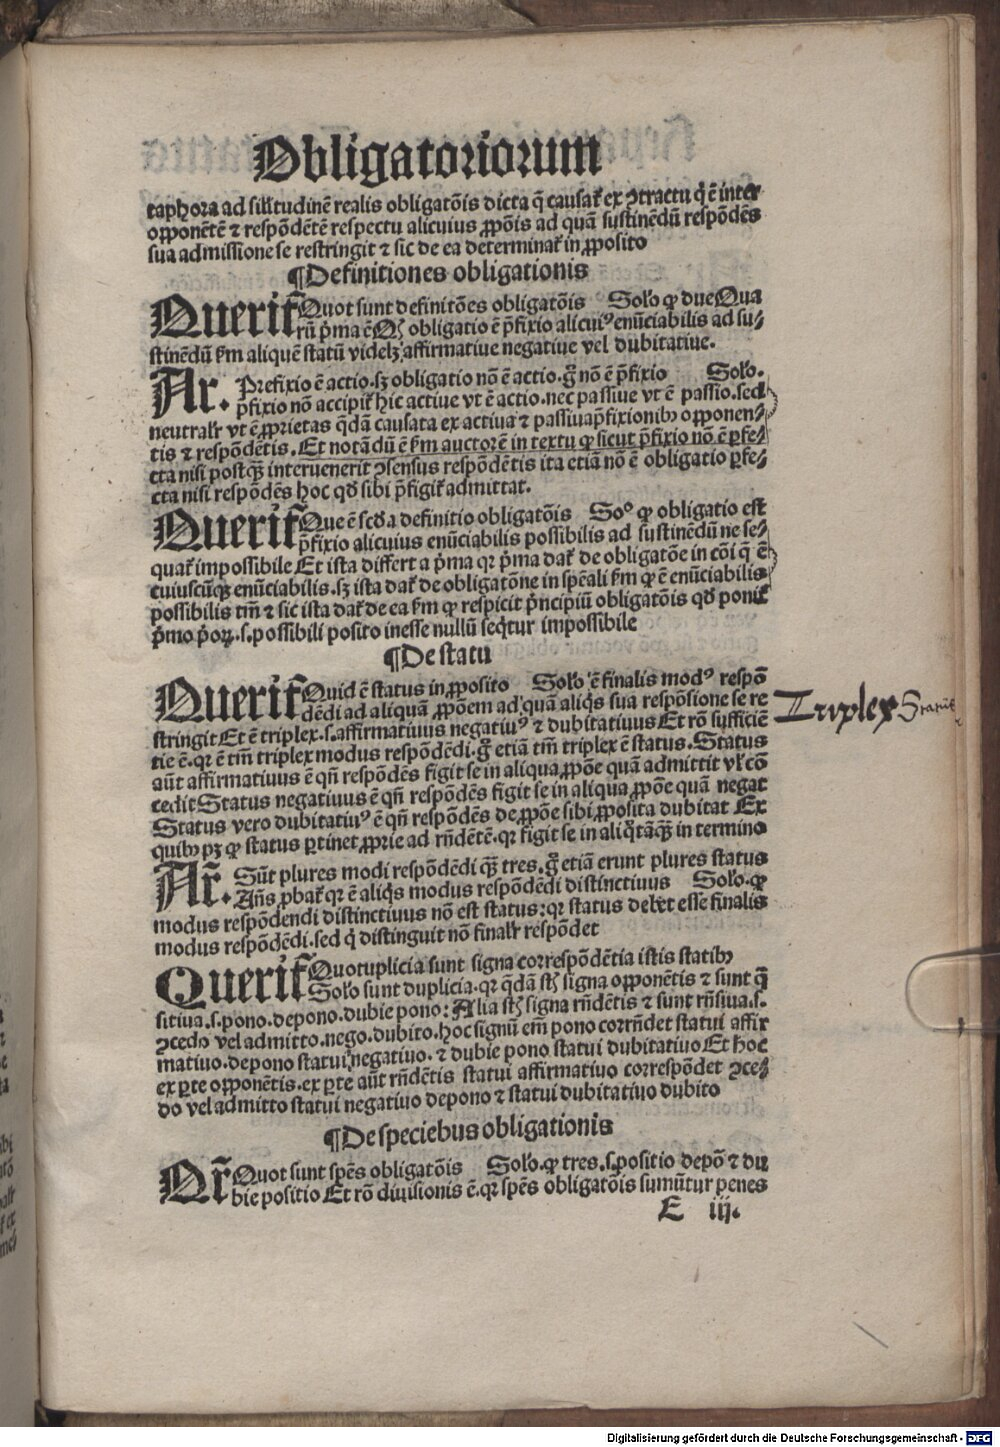 Obligatoriorum
taphora ad sil'itudinē realis obligatōis dicta q̄ causat̄ ex ꝯtractu q̇ ē inter
opponētē ⁊ respōdētē respectu alicuius ꝓpōis ad quā sustinēdū respōdēs
sua admissione se restringit ⁊ sic de ea determinat̄ in ꝓposito
¶Definitiones obligationis
Querit̄ Quot sunt definitōes obligatōis Solo ꝙ due Qua
rū p̄ma ē Qꝫ obligatio ē p̄fixio alicuiꝰ enūciabilis ad su⸗
stinēdū ẜm aliquē statū videlꝫ affirmatiue negatiue vel dubitatiue.
Ar. Prefixio ē actio.sꝫ obligatio nō ē actio.g̊ nō ē p̄fixio Solo.
p̄fixio nō accipit̄ hic actiue vt ē actio.nec passiue vt ē passio.sed
neutral'r vt ē ꝓprietas q̄dā causata ex actiua ⁊ passiua p̄fixionibꝰ opponen⸗
tis ⁊ respōdētis. Et notādū ē ẜm auctorē in textu ꝙ sicut p̄fixio nō ē ꝑfe⸗
cta nisi postqꝫ interuenerit ꝯsensus respōdētis ita etiā nō ē obligatio ꝑfe⸗
cta nisi respōdēs hoc qd̄ sibi p̄figit̄ admittat.
Querit̄ Que ē scd̄a definitio obligatōis Soº ꝙ obligatio est
p̄fixio alicuius enūciabilis possibilis ad sustinēdū ne se⸗
quat̄ impossibile Et ista differt a p̄ma qꝛ p̄ma dat̄ de obligatōe in cōi q̄ ē
cuiuscūqꝫ enūciabilis.sꝫ ista dat̄ de obligatōne in spēali ẜm ꝙ ē enūciabilis
possibilis tm̄ ⁊ sic ista dat̄ de ea ẜm ꝙ respicit p̄ncipiū obligatōis qd̄ ponit̄
p̄mo p̄oꝝ.s.possibili posito inesse nullū seq̇tur impossibile
¶De statu
Querit̄ Quid ē status in ꝓposito Solo ē finalis modꝰ respō
dēdi ad aliquā ꝓpōem ad quā aliq̇s sua respōsione se re
stringit Et ē triplex.s.affirmatiuus negatiuꝰ ⁊ dubitatiuus Et rō sufficiē
tie ē.qꝛ ē tm̄ triplex modus respōdēdi.g̊ etiā tm̄ triplex ē status. Status
aūt affirmatiuus ē qn̄ respōdēs figit se in aliqua ꝓpōe quā admittit vl' cō
cedit Status negatiuus ē qn̄ respōdēs figit se in aliqua ꝓpōe quā negat
Status vero dubitatiuꝰ ē qn̄ respōdēs de ꝓpōe sibi ꝓposita dubitat Ex
quibꝰ pꝫ ꝙ status ꝑtinet ꝓprie ad rn̄dētē.qꝛ figit se in aliq̇ tāqꝫ in termino
Ar̄. Sūt plures modi respōdēdi qꝫ tres.g̊ etiā erunt plures status
Añs ꝓbat̄ qꝛ ē aliq̇s modus respōdēdi distinctiuus Solo.ꝙ
modus respōdendi distinctiuus nō est status:qꝛ status debet esse finalis
modus respōdēdi.sed q̇ distinguit nō final'r respōdet
Querit̄ Quotuplicia sunt signa correspōdētia istis statibꝰ
Solo sunt duplicia.qꝛ q̄dā st̄ signa opponētis ⁊ sunt q̄
sitiua.s.pono.depono.dubie pono: Alia st̄ signa rn̄dētis ⁊ sunt rn̄siua.s.
ꝯcedo vel admitto.nego.dubito.hoc signū em̄ pono corrn̄det statui affir
matiuo.depono statui negatiuo.⁊ dubie pono statui dubitatiuo Et hoc
ex ꝑte opponētis.ex ꝑte aūt rn̄dētis statui affirmatiuo correspōdet ꝯce⸗
do vel admitto statui negatiuo depono ⁊ statui dubitatiuo dubito
¶De speciebus obligationis
Qr̄ Quot sunt spēs obligatōis Solo.ꝙ tres.s.positio depō ⁊ du
bie positio Et rō diuisionis ē.qꝛ spēs obligatōis sumūtur penes
E iij.
Triplex Status
Digitalisierung gefördert durch die Deutsche Forschungsgemeinschaft - DFG